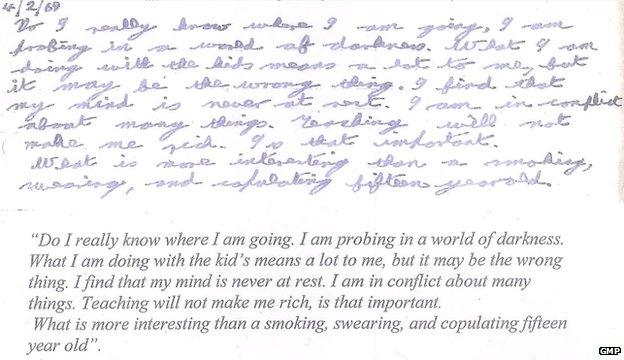 4/2/69
Do I really know where I am going, I am
probing in a world of darkness. What I am
doing with the kids means a lot to me, but
it may be the wrong thing. I find that
my mind is never at rest. I am in conflict
about many things. Teaching will not
make me rich. Is that important.
What is more interesting than a smoking,
swearing, and copulating fifteen year old.
“Do I really know where I am going. I am probing in a world of darkness.
What I am doing with the kid’s means a lot to me, but it may be the wrong
thing. I find that my mind is never at rest. I am in conflict about many
things. Teaching will not make me rich, is that important.
What is more interesting than a smoking, swearing, and copulating fifteen
year old”.
GMP